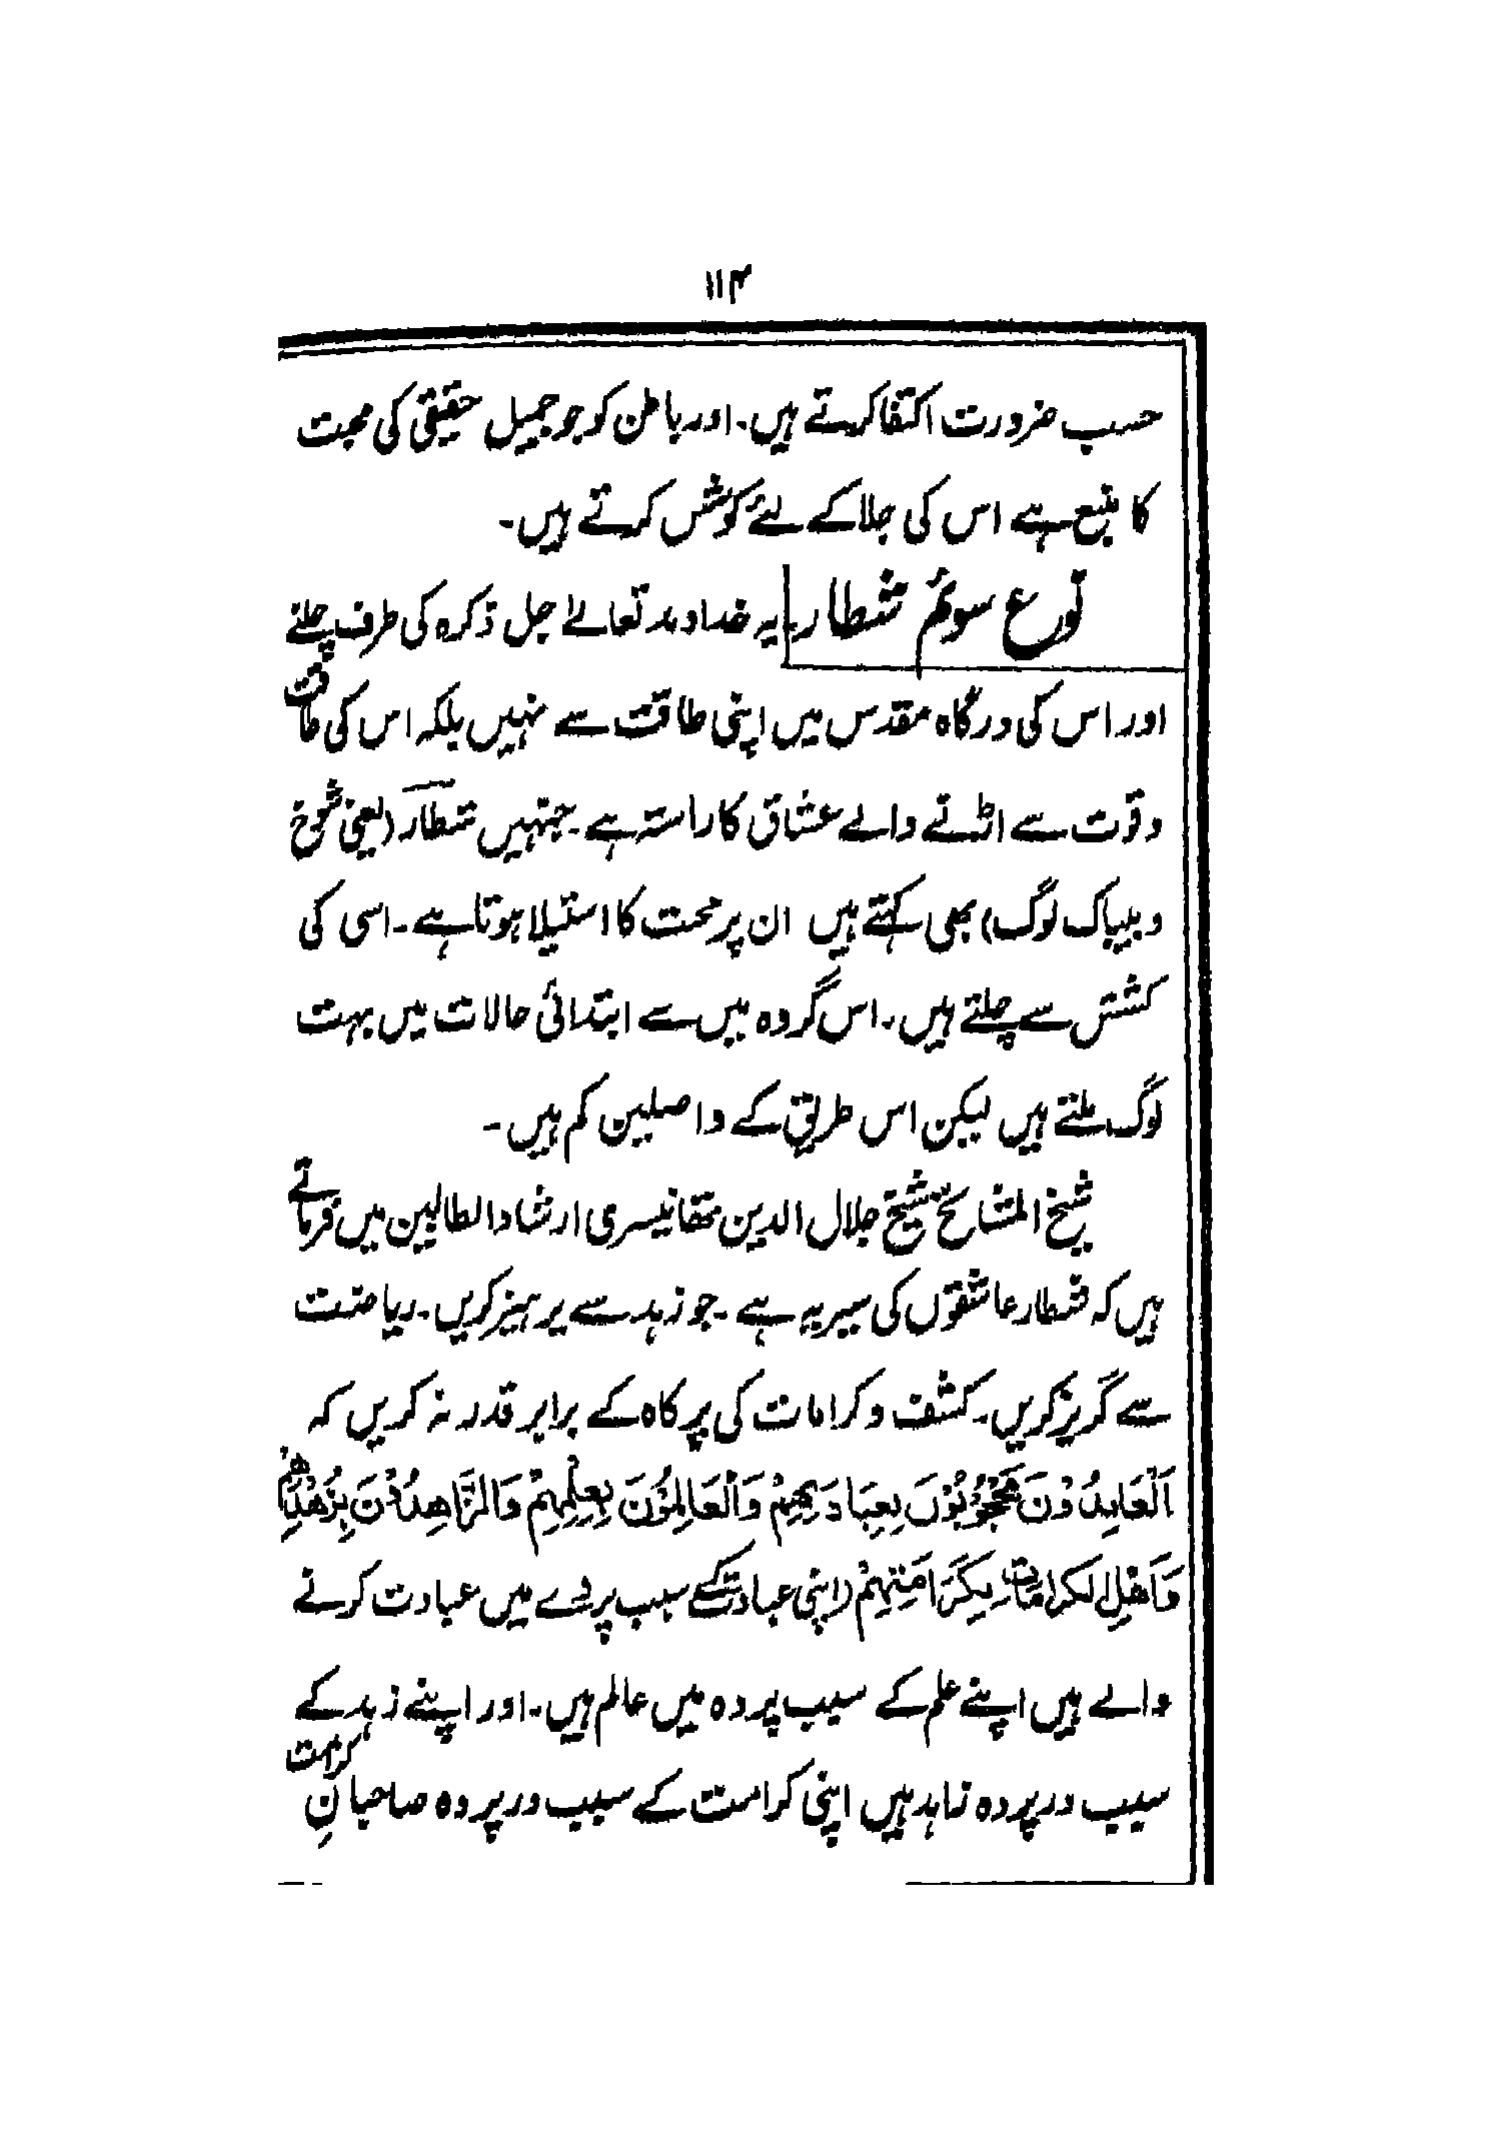 ۱۱۴
حسب ضرورت اکتفا کرتے ہیں۔ اور باطن کو جو جمیل حقیقی کی محبت
کا منبع ہے اس کی جلا کے لئے کوشش کرتے ہیں۔
نوع سوئم شطار یہ خداوند تعالےٰ جل ذکرہ کی طرف چلنے
اور اس کی درگاہ مقدس میں اپنی طاقت سے نہیں بلکہ اس کی طاقت
و قوّت سے اڑنے والے عشاق کا راستہ ہے۔ جنہیں شطار (یعنی شوخ
و بیباک لوگ) بھی کہتے ہیں ان پر محبت کا استیلا ہوتا ہے۔ اسی کی
کشش سے چلتے ہیں۔ اس گروہ میں سے ابتدائی حالات میں بہت
لوگ ملتے ہیں لیکن اس طریق کے واصلین کم ہیں۔
شیخ المشائخ شیخ جلال الدین تھانیسری ارشاد الطالبین میں فرماتے
ہیں کہ شطار عاشقوں کی سیر یہ ہے۔ جو زہد سے پرہیز کریں۔ ریاضت
سے گریز کریں۔ کشف و کرامات کی پر کاہ کے برابر قدر نہ کریں کہ
اَلْعَابِدُوْنَ مَحْجُوْبُوْنَ بِعِبَادَتِهِمْ وَالْعَالِمُوْنَ بِعِلْمِهِمْ وَالزَّاهِدُوْنَ بِزُهْدِهِمْ
وَاَهْلِ لکرامات بِكَرَامَتِهِمْ (اپنی عبادت کے سبب پردے میں عبادت کرنے
والے ہیں اپنے علم کے سبب پردہ میں عالم ہیں۔ اور اپنے زہد کے
سبب در پردہ زاہد ہیں اپنی کرامت کے سبب در پردہ صاحبانِ کرامت